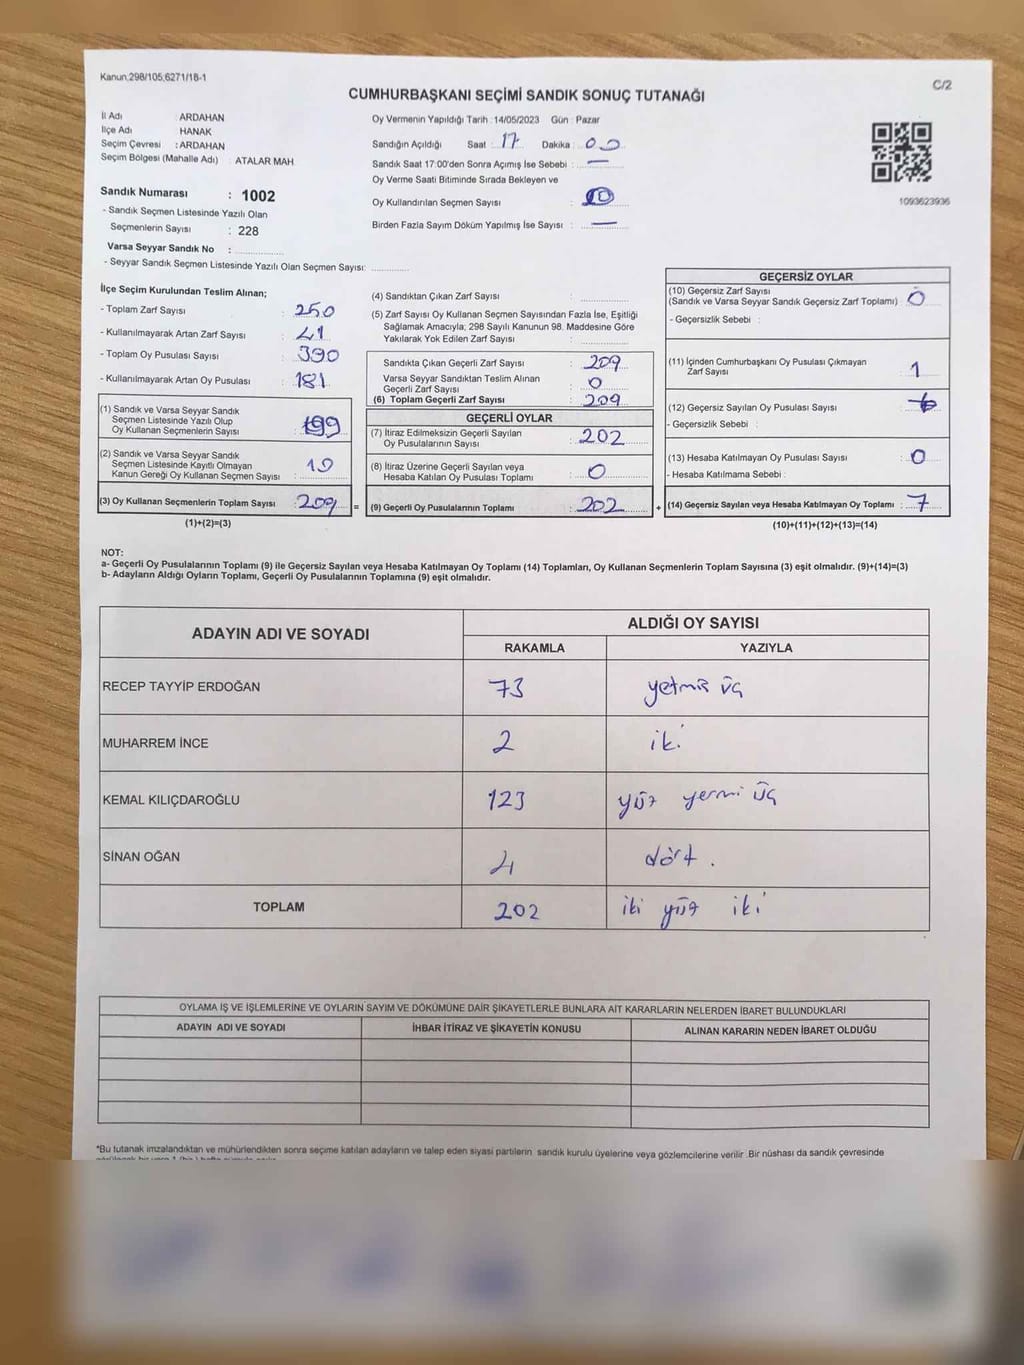 Kanun;298/105;6271/18-1
C/2
CUMHURBAŞKANI SEÇİMİ SANDIK SONUÇ TUTANAĞI
İl Adı : ARDAHAN
İlçe Adı : HANAK
Seçim Çevresi : ARDAHAN
Seçim Bölgesi (Mahalle Adı) : ATALAR MAH
Sandık Numarası : 1002
- Sandık Seçmen Listesinde Yazılı Olan
Seçmenlerin Sayısı : 228
Varsa Seyyar Sandık No :
- Seyyar Sandık Seçmen Listesinde Yazılı Olan Seçmen Sayısı:
Oy Vermenin Yapıldığı Tarih : 14/05/2023 Gün : Pazar
Sandığın Açıldığı Saat : 17 Dakika : 00
Sandık Saat 17:00'den Sonra Açımış İse Sebebi : —
Oy Verme Saati Bitiminde Sırada Bekleyen ve
Oy Kullandırılan Seçmen Sayısı :
Birden Fazla Sayım Döküm Yapılmış İse Sayısı : —
1093623936
İlçe Seçim Kurulundan Teslim Alınan;
- Toplam Zarf Sayısı : 250
- Kullanılmayarak Artan Zarf Sayısı : 41
- Toplam Oy Pusulası Sayısı : 390
- Kullanılmayarak Artan Oy Pusulası : 181
(1) Sandık ve Varsa Seyyar Sandık
Seçmen Listesinde Yazılı Olup
Oy Kullanan Seçmenlerin Sayısı : 199
(2) Sandık ve Varsa Seyyar Sandık
Seçmen Listesinde Kayıtlı Olmayan
Kanun Gereği Oy Kullanan Seçmen Sayısı : 10
(3) Oy Kullanan Seçmenlerin Toplam Sayısı : 209 =
(1)+(2)=(3)
(4) Sandıktan Çıkan Zarf Sayısı :
(5) Zarf Sayısı Oy Kullanan Seçmen Sayısından Fazla İse, Eşitliği
Sağlamak Amacıyla; 298 Sayılı Kanunun 98. Maddesine Göre
Yakılarak Yok Edilen Zarf Sayısı :
Sandıkta Çıkan Geçerli Zarf Sayısı : 209
Varsa Seyyar Sandıktan Teslim Alınan
Geçerli Zarf Sayısı : 0
(6) Toplam Geçerli Zarf Sayısı : 209
GEÇERLİ OYLAR
(7) İtiraz Edilmeksizin Geçerli Sayılan
Oy Pusulalarının Sayısı : 202
(8) İtiraz Üzerine Geçerli Sayılan veya
Hesaba Katılan Oy Pusulası Toplamı : 0
(9) Geçerli Oy Pusulalarının Toplamı : 202 +
GEÇERSİZ OYLAR
(10) Geçersiz Zarf Sayısı
(Sandık ve Varsa Seyyar Sandık Geçersiz Zarf Toplamı) : 0
- Geçersizlik Sebebi :
(11) İçinden Cumhurbaşkanı Oy Pusulası Çıkmayan
Zarf Sayısı : 1
(12) Geçersiz Sayılan Oy Pusulası Sayısı : 6
- Geçersizlik Sebebi :
(13) Hesaba Katılmayan Oy Pusulası Sayısı : 0
- Hesaba Katılmama Sebebi :
(14) Geçersiz Sayılan veya Hesaba Katılmayan Oy Toplamı : 7
(10)+(11)+(12)+(13)=(14)
NOT:
a- Geçerli Oy Pusulalarının Toplamı (9) ile Geçersiz Sayılan veya Hesaba Katılmayan Oy Toplamı (14) Toplamları, Oy Kullanan Seçmenlerin Toplam Sayısına (3) eşit olmalıdır. (9)+(14)=(3)
b- Adayların Aldığı Oyların Toplamı, Geçerli Oy Pusulalarının Toplamına (9) eşit olmalıdır.
ADAYIN ADI VE SOYADI
ALDIĞI OY SAYISI
RAKAMLA YAZIYLA
RECEP TAYYİP ERDOĞAN 73 yetmiş üç
MUHARREM İNCE 2 iki
KEMAL KILIÇDAROĞLU 123 yüz yermi üç
SİNAN OĞAN 4 dört .
TOPLAM 202 iki yüz iki
OYLAMA İŞ VE İŞLEMLERİNE VE OYLARIN SAYIM VE DÖKÜMÜNE DAİR ŞİKAYETLERLE BUNLARA AİT KARARLARIN NELERDEN İBARET BULUNDUKLARI
ADAYIN ADI VE SOYADI İHBAR İTİRAZ VE ŞİKAYETİN KONUSU ALINAN KARARIN NEDEN İBARET OLDUĞU
*Bu tutanak imzalandıktan ve mühürlendikten sonra seçime katılan adayların ve talep eden siyasi partilerin sandık kurulu üyelerine veya gözlemcilerine verilir .Bir nüshası da sandık çevresinde